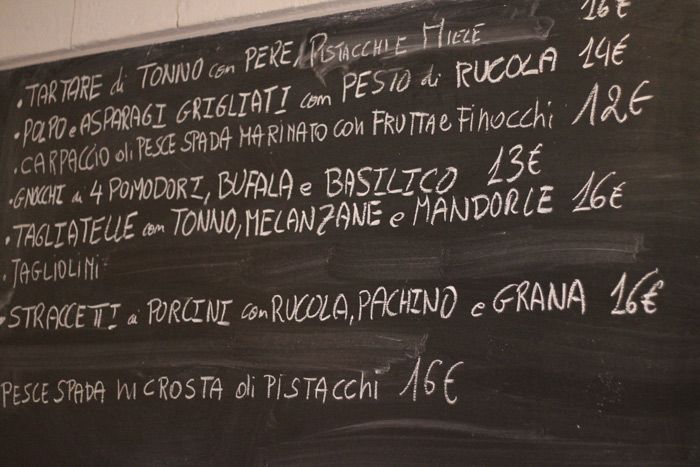 • TARTARE di TONNO con PERE, PISTACCHI E MIELE 16€
• POLPO e ASPARAGI GRIGLIATI con PESTO di RUCOLA 14€
• CARPACCIO di PESCE SPADA MARINATO con FRUTTA e FINOCCHI 12€
• GNOCCHI ai 4 POMODORI, BUFALA e BASILICO 13€
• TAGLIATELLE con TONNO, MELANZANE e MANDORLE 16€
• TAGLIOLINI
• STRACCETTI ai PORCINI con RUCOLA, PACHINO e GRANA 16€
PESCE SPADA in CROSTA di PISTACCHI 16€